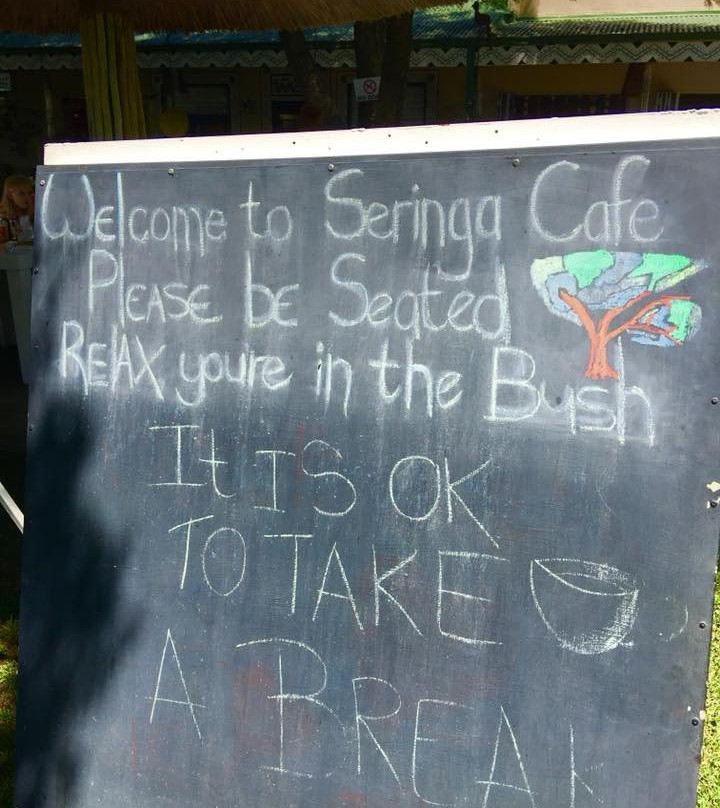 Welcome to Seringa Cafe
PLEASE bE Seated
RElAX youre in the Bush
It IS OK
TO TAKE
A BREAK